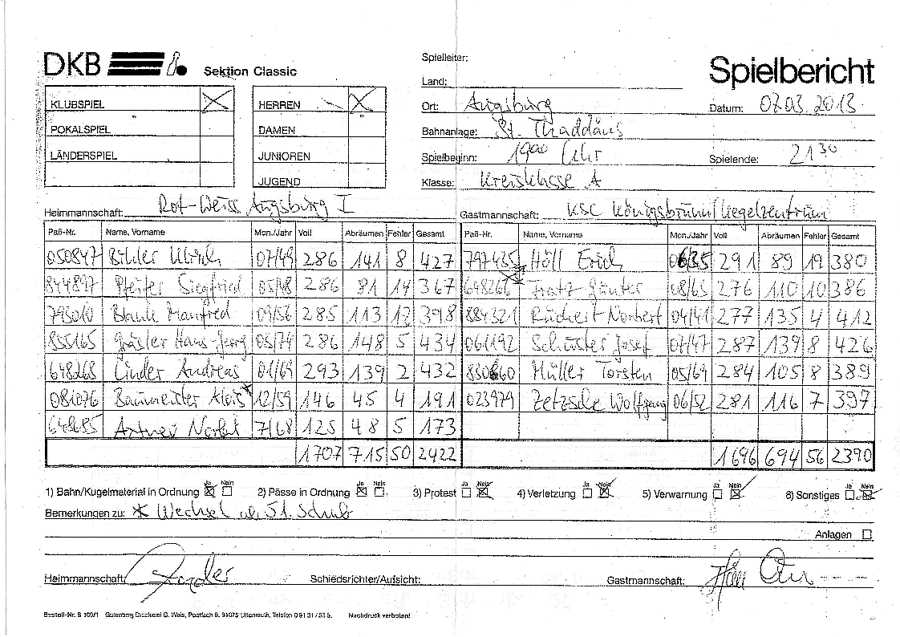 DKB Sektion Classic
Spielbericht
Spielleiter:
Land:
KLUBSPIEL X HERREN X
Ort: Augsburg Datum: 07.03.2013
POKALSPIEL DAMEN
Bahnanlage: St. Thaddäus
LÄNDERSPIEL JUNIOREN
Spielbeginn: 19⁰⁰ Uhr Spielende: 21³⁰
JUGEND
Klasse: Kreisklasse A
Heimmannschaft: Rot-Weiss Augsburg I Gastmannschaft: KSC Königsbrunn/Kegelzentrum
Paß-Nr. Name, Vorname Mon./Jahr Voll Abräumen Fehler Gesamt Paß-Nr. Name, Vorname Mon./Jahr Voll Abräumen Fehler Gesamt
050847 Ulrich 07/49 286 141 8 427 797435 Höll Erich 06/35 291 89 19 380
844897 Pfeifer Siegfried 05/48 286 81 14 367 648266 Günter 08/65 276 110 10 386
795010 Blank Manfred 09/56 285 113 17 398 884321 Norbert 04/41 277 135 4 412
855165 Hans-Georg 05/74 286 148 5 434 061192 Schuster Josef 07/47 287 139 8 426
648268 Linder Andreas 01/69 293 139 2 432 830860 Müller Torsten 05/69 284 105 8 389
081076 Baumeister Alois* 12/59 146 45 4 191 023979 Zetzsche Wolfgang 06/52 281 116 7 397
648685 7/68 125 48 5 173
1707 715 50 2422 1696 694 56 2390
1) Bahn/Kugelmaterial in Ordnung Ja Nein 2) Pässe in Ordnung Ja Nein 3) Protest Ja Nein 4) Verletzung Ja Nein 5) Verwarnung Ja Nein 6) Sonstiges Ja Nein
Bemerkungen zu: * Wechsel ab 51. Schub
Anlagen
Heimmannschaft: Schiedsrichter/Aufsicht: Gastmannschaft:
Nachdruck verboten!